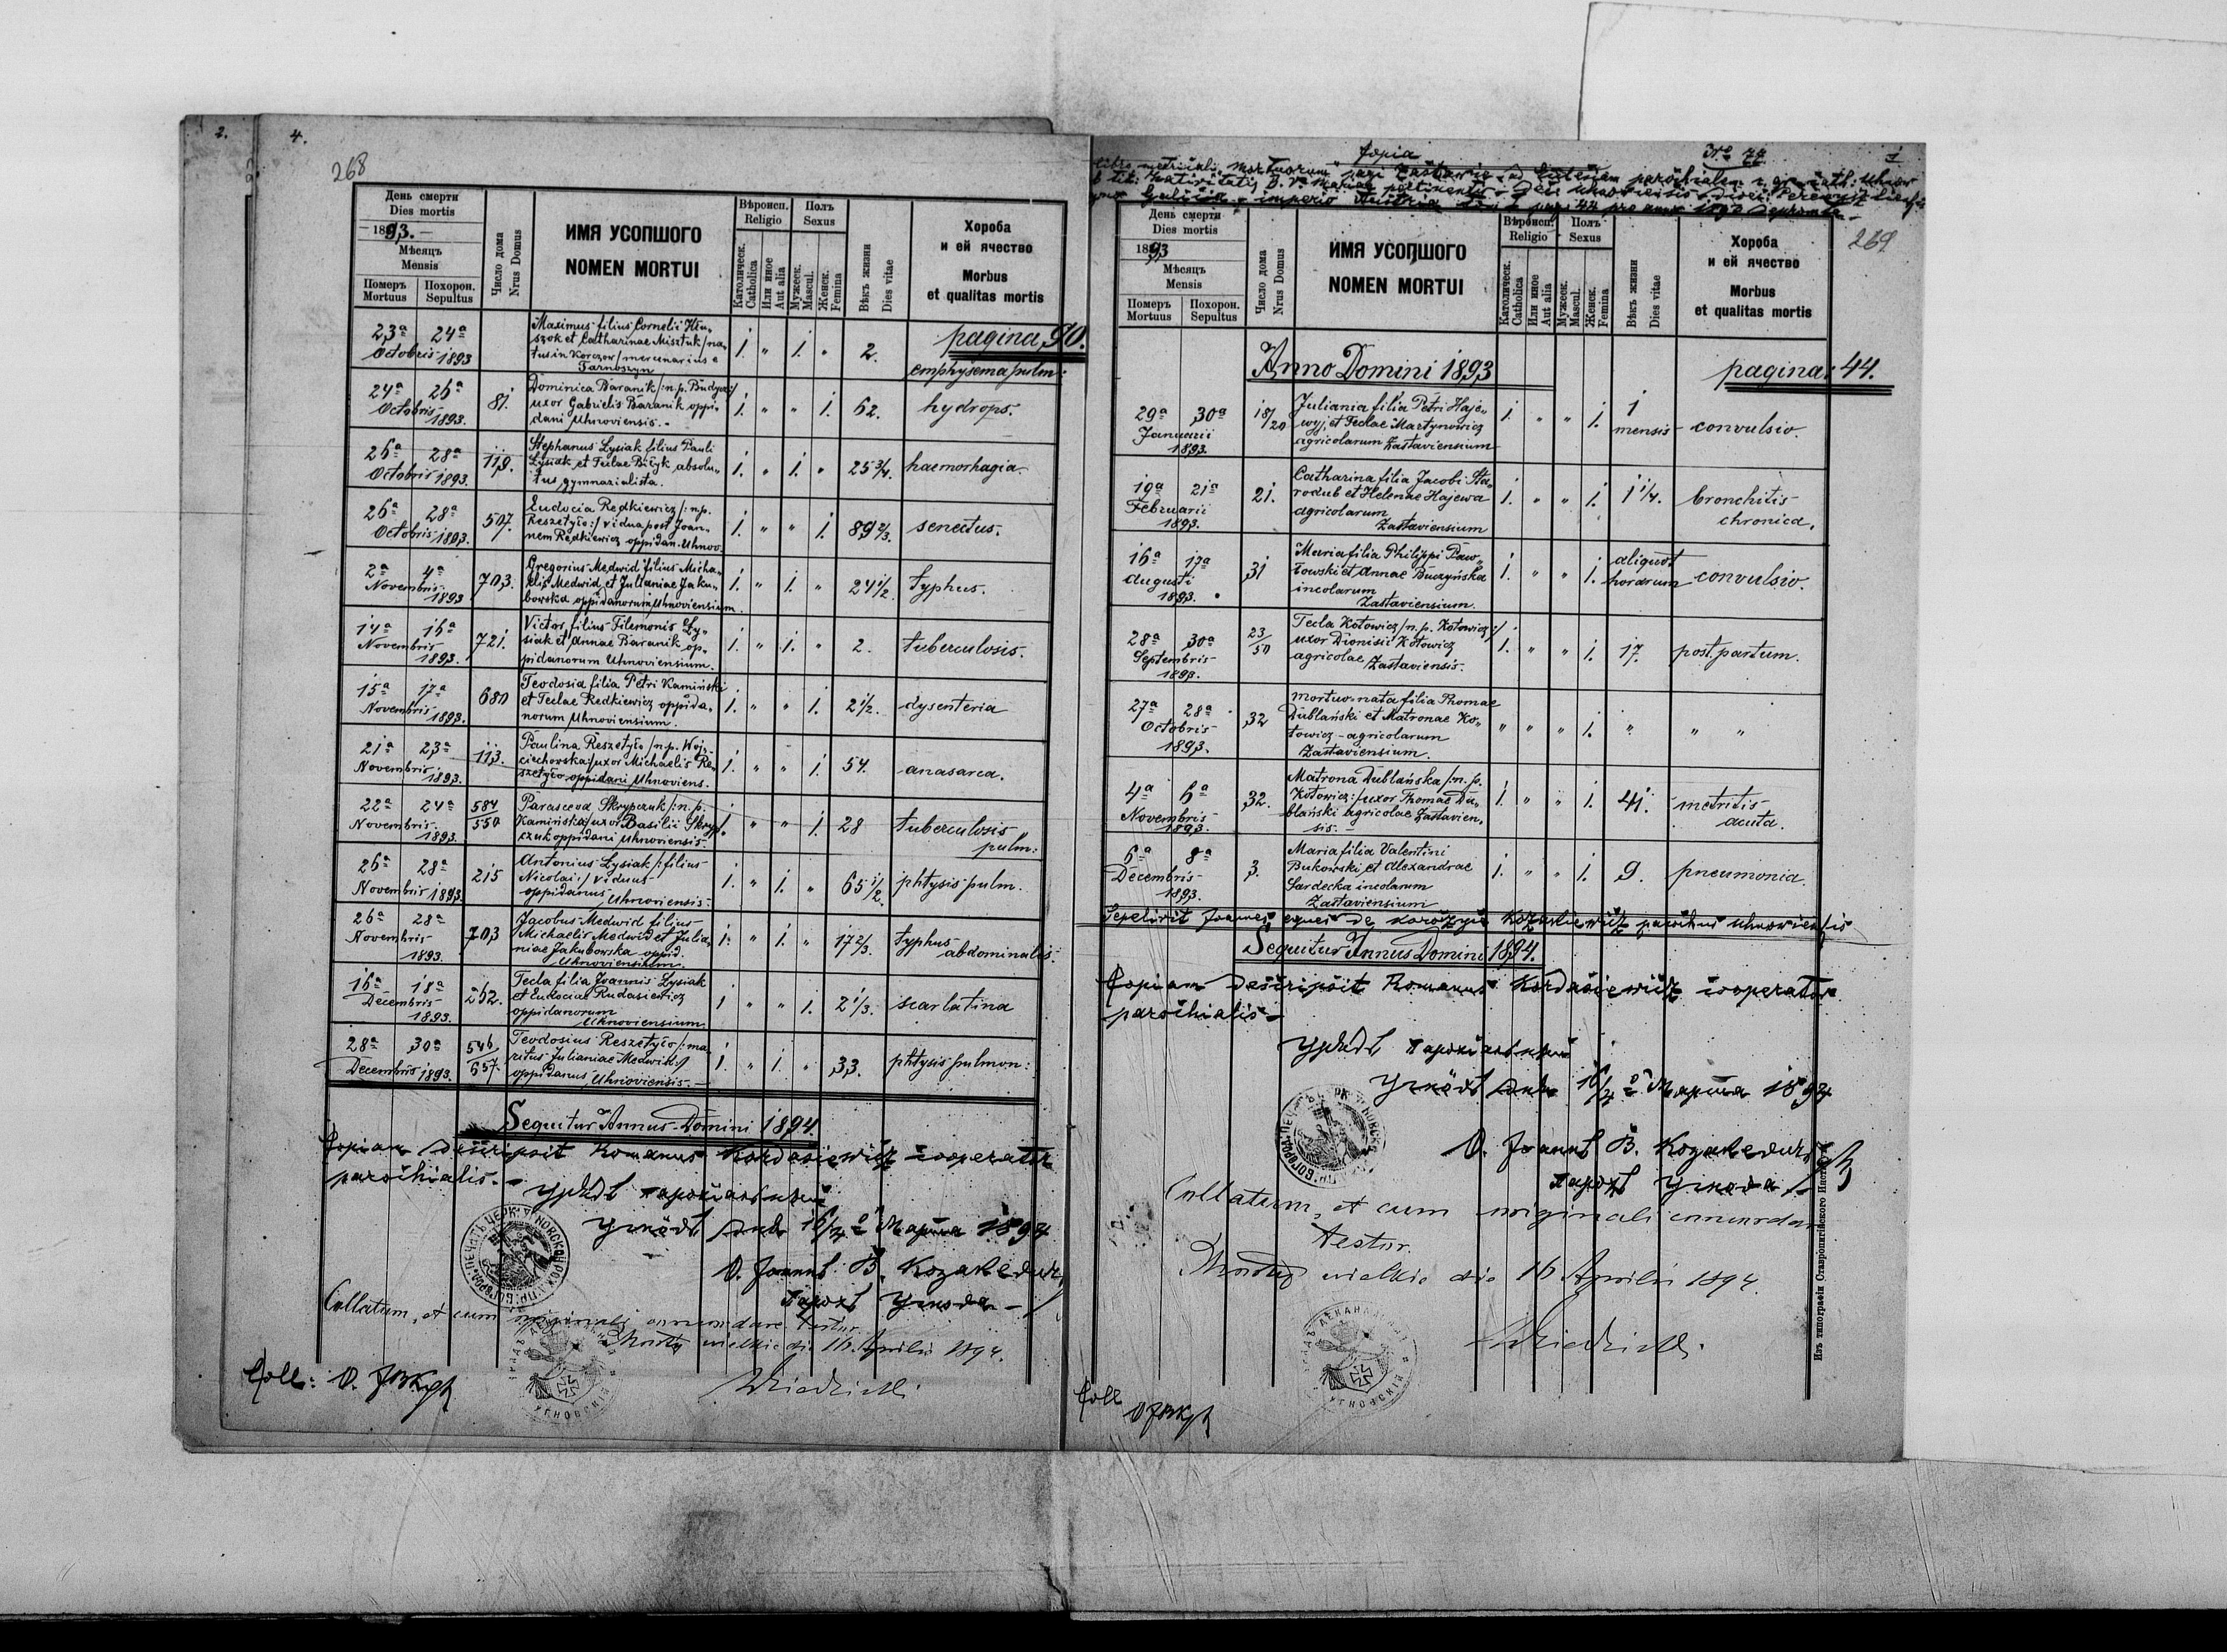 2.
4.
268
День смерти
Dies mortis
1893.
Мѣсяцъ
Mensis
Померъ
Mortuus
Похорон.
Sepultus
Число дома
Nrus Domus
ИМЯ УСОПШОГО
NOMEN MORTUI
Вѣроисп.
Religio
Католическ.
Catholica
Или иное
Aut alia
Полъ
Sexus
Мужеск.
Mascul.
Женск.
Femina
Вѣкъ жизни
Dies vitae
Хороба
и ей ячество
Morbus
et qualitas mortis
pagina, 90.
23ª 24ª Octobris 1893
Maximus filius Cornelii
et Catharinae Misztuk /na„
tus in Korczow/ mercenarius e
Tarnoszyn
1. „ 1. „ 2. emphysema pulm:
24ª 26ª Octobris 1893. 81.
Dominica Baranik /:n.p.
uxor Gabrielis Baranik oppi„
dani Uhnoviensis.-
1. „ „ 1. 62. hydrops.
26ª 28ª Octobris 1893. 119.
Stephanus Lysiak filius Pauli
Lysiak et Teclae Biłyk absolu„
tus gymnazialista.
1. „ 1. „ 25 3/4. haemorhagia.
26ª 28ª Octobris 1893. 507.
Eudocia Redkiewicz /:n.p.
Reszetyło:/ vidua post Joan„
nem Redkiewicz oppidan. Uhnov.
1. „ „ 1. 89 2/3. senectus.
2ª 4ª Novembris 1893 703.
Gregorius Medwid filius Micha„
elis Medwid et Julianiae Jaku„
bowska oppidanorum Uhnoviensium.
1. „ 1. „ 24 1/2. typhus.
14ª 16ª Novembris 1893. 721.
Victor filius Filemonis Ly„
siak et Annae Baranik op„
pidanorum Uhnoviensium.
1. „ 1. „ 2. tuberculosis.
15ª 17ª Novembris 1893. 680
Teodosia filia Petri Kamiński
et Teclae Redkiewicz oppida„
norum Uhnoviensium.
1. „ „ 1. 2 1/2. dysenteria
21ª 23ª Novembris 1893. 113.
Paulina Reszetyło /n.p. Woj„
ciechowska:/ uxor Michaelis Re„
szetyło oppidani Uhnoviens.
1. „ „ 1. 54. anasarca.
22ª 24ª Novembris 1893. 584/550
Parasceva Skrypczuk /:n.p.
Kamińska:/ uxor Basilii Skryp„
czuk oppidani Uhnoviensis.
1. „ „ 1. 28 tuberculosis
pulm:
26ª 28ª Novembris 1893 215
Antonius Lysiak /:filius
Nicolai:/ viduus
oppidanus Uhnoviensis.
1. „ 1. „ 65 1/2. phtysis pulm.
26ª 28ª Novembris 1893. 703
Jacobus Medwid filius
Michaelis Medwid et Julia„
niae Jakubowska oppid.
Uhnoviensium.
1. „ 1. „ 17 2/3. typhus
abdominalis.
16ª 18ª Decembris 1893. 262.
Tecla filia Joannis Lysiak
et Eudociae Rudasiewicz
oppidanorum
Uhnoviensium
1 „ „ 1. 2 1/3. scarlatina
28ª 30ª Decembris 1893. 546/657.
Teodosius Reszetyło /:ma„
ritus Julianiae Medwid:/
oppidanus Uhnoviensis.
1. „ 1. „ 33. phtysis pulmon:
Sequitur Annus Domini 1894.
Copiam descripsit Romanus Kordasiewicz cooperator
parochialis.-
Урядъ парохіальный
Угнôвъ дня 16/4 Марта 1894
О. Іоаннъ В. Козакевичъ
парохъ Угнова
Collatum, et cum originali concordare testor.
Mosty wielkie die 16. Aprilis 1894.
Coll:
Copia
№ 77
1
269
libro metricali Mortuorum pagi Zastawie ad ecclesiam parochialem r. gr. cath. Uhnow
tit: Nativitatis B. V. Mariae pertinentis
Galicia imperio Austria pag: 44 pro anno 1893 deprompta
День смерти
Dies mortis
1893
Мѣсяцъ
Mensis
Померъ
Mortuus
Похорон.
Sepultus
Число дома
Nrus Domus
ИМЯ УСОПШОГО
NOMEN MORTUI
Вѣроисп.
Religio
Католическ.
Catholica
Или иное
Aut alia
Полъ
Sexus
Мужеск.
Mascul.
Женск.
Femina
Вѣкъ жизни
Dies vitae
Хороба
и ей ячество
Morbus
et qualitas mortis
Anno Domini 1893
pagina: 44.
29ª 30ª Januarii 1893. 18/20
Juliania filia Petri Haje„
wyj, et Teclae Martynowicz
agricolarum Zastaviensium
1. „ „ 1. 1 mensis convulsio.
19ª 21ª Februarii 1893. 21.
Catharina filia Jacobi Sta„
rodub et Helenae Hajewa
agricolarum
Zastaviensium
1. „ „ 1. 1 1/4. bronchitis
chronica.
16ª 17ª Augusti 1893. 31
Maria filia Philippi Paw„
łowski et Annae Buczyńska
incolarum
Zastaviensium.
1. „ „ 1. aliquot
horarum convulsio.
28ª 30ª Septembris 1893. 23/50
Tecla Kotowicz /n.p. Kotowicz:/
uxor Dionisii Kotowicz
agricolae Zastaviensis.
1. „ „ 1. 17. post partum.
27ª 28ª Octobris 1893. 32
Mortuo-nata filia Thomae
Dublański et Matronae Ko„
towicz agricolarum
Zastaviensium.
„ „ „ 1. „ „ „
4ª 6ª Novembris 1893. 32.
Matrona Dublańska /:n.p.
Kotowicz:/ uxor Thomae Du„
blański agricolae Zastavien„
sis.-
1. „ „ 1. 41. metritis
acuta.
6ª 8ª Decembris 1893. 3.
Maria filia Valentini
Bukowski et Alexandrae
Sardecka incolarum
Zastaviensium
1. „ „ 1. 9. pneumonia.
Sepelivit Joannes eques de Kozakiewicz parochus Uhnoviensis
Sequitur Annus Domini 1894.
Copiam descripsit Romanus Kordasiewicz cooperator
parochialis
Урядъ парохіальный
Угнôвъ дня 16/4 Марта 1894
О. Іоаннъ В. Козакевичъ
парохъ Угнова
Collatum, et cum originali concordare
testor.
Mosty wielkie die 16 Aprilis 1894.
Coll
Изъ типографіи Ставропигійского Инстит.